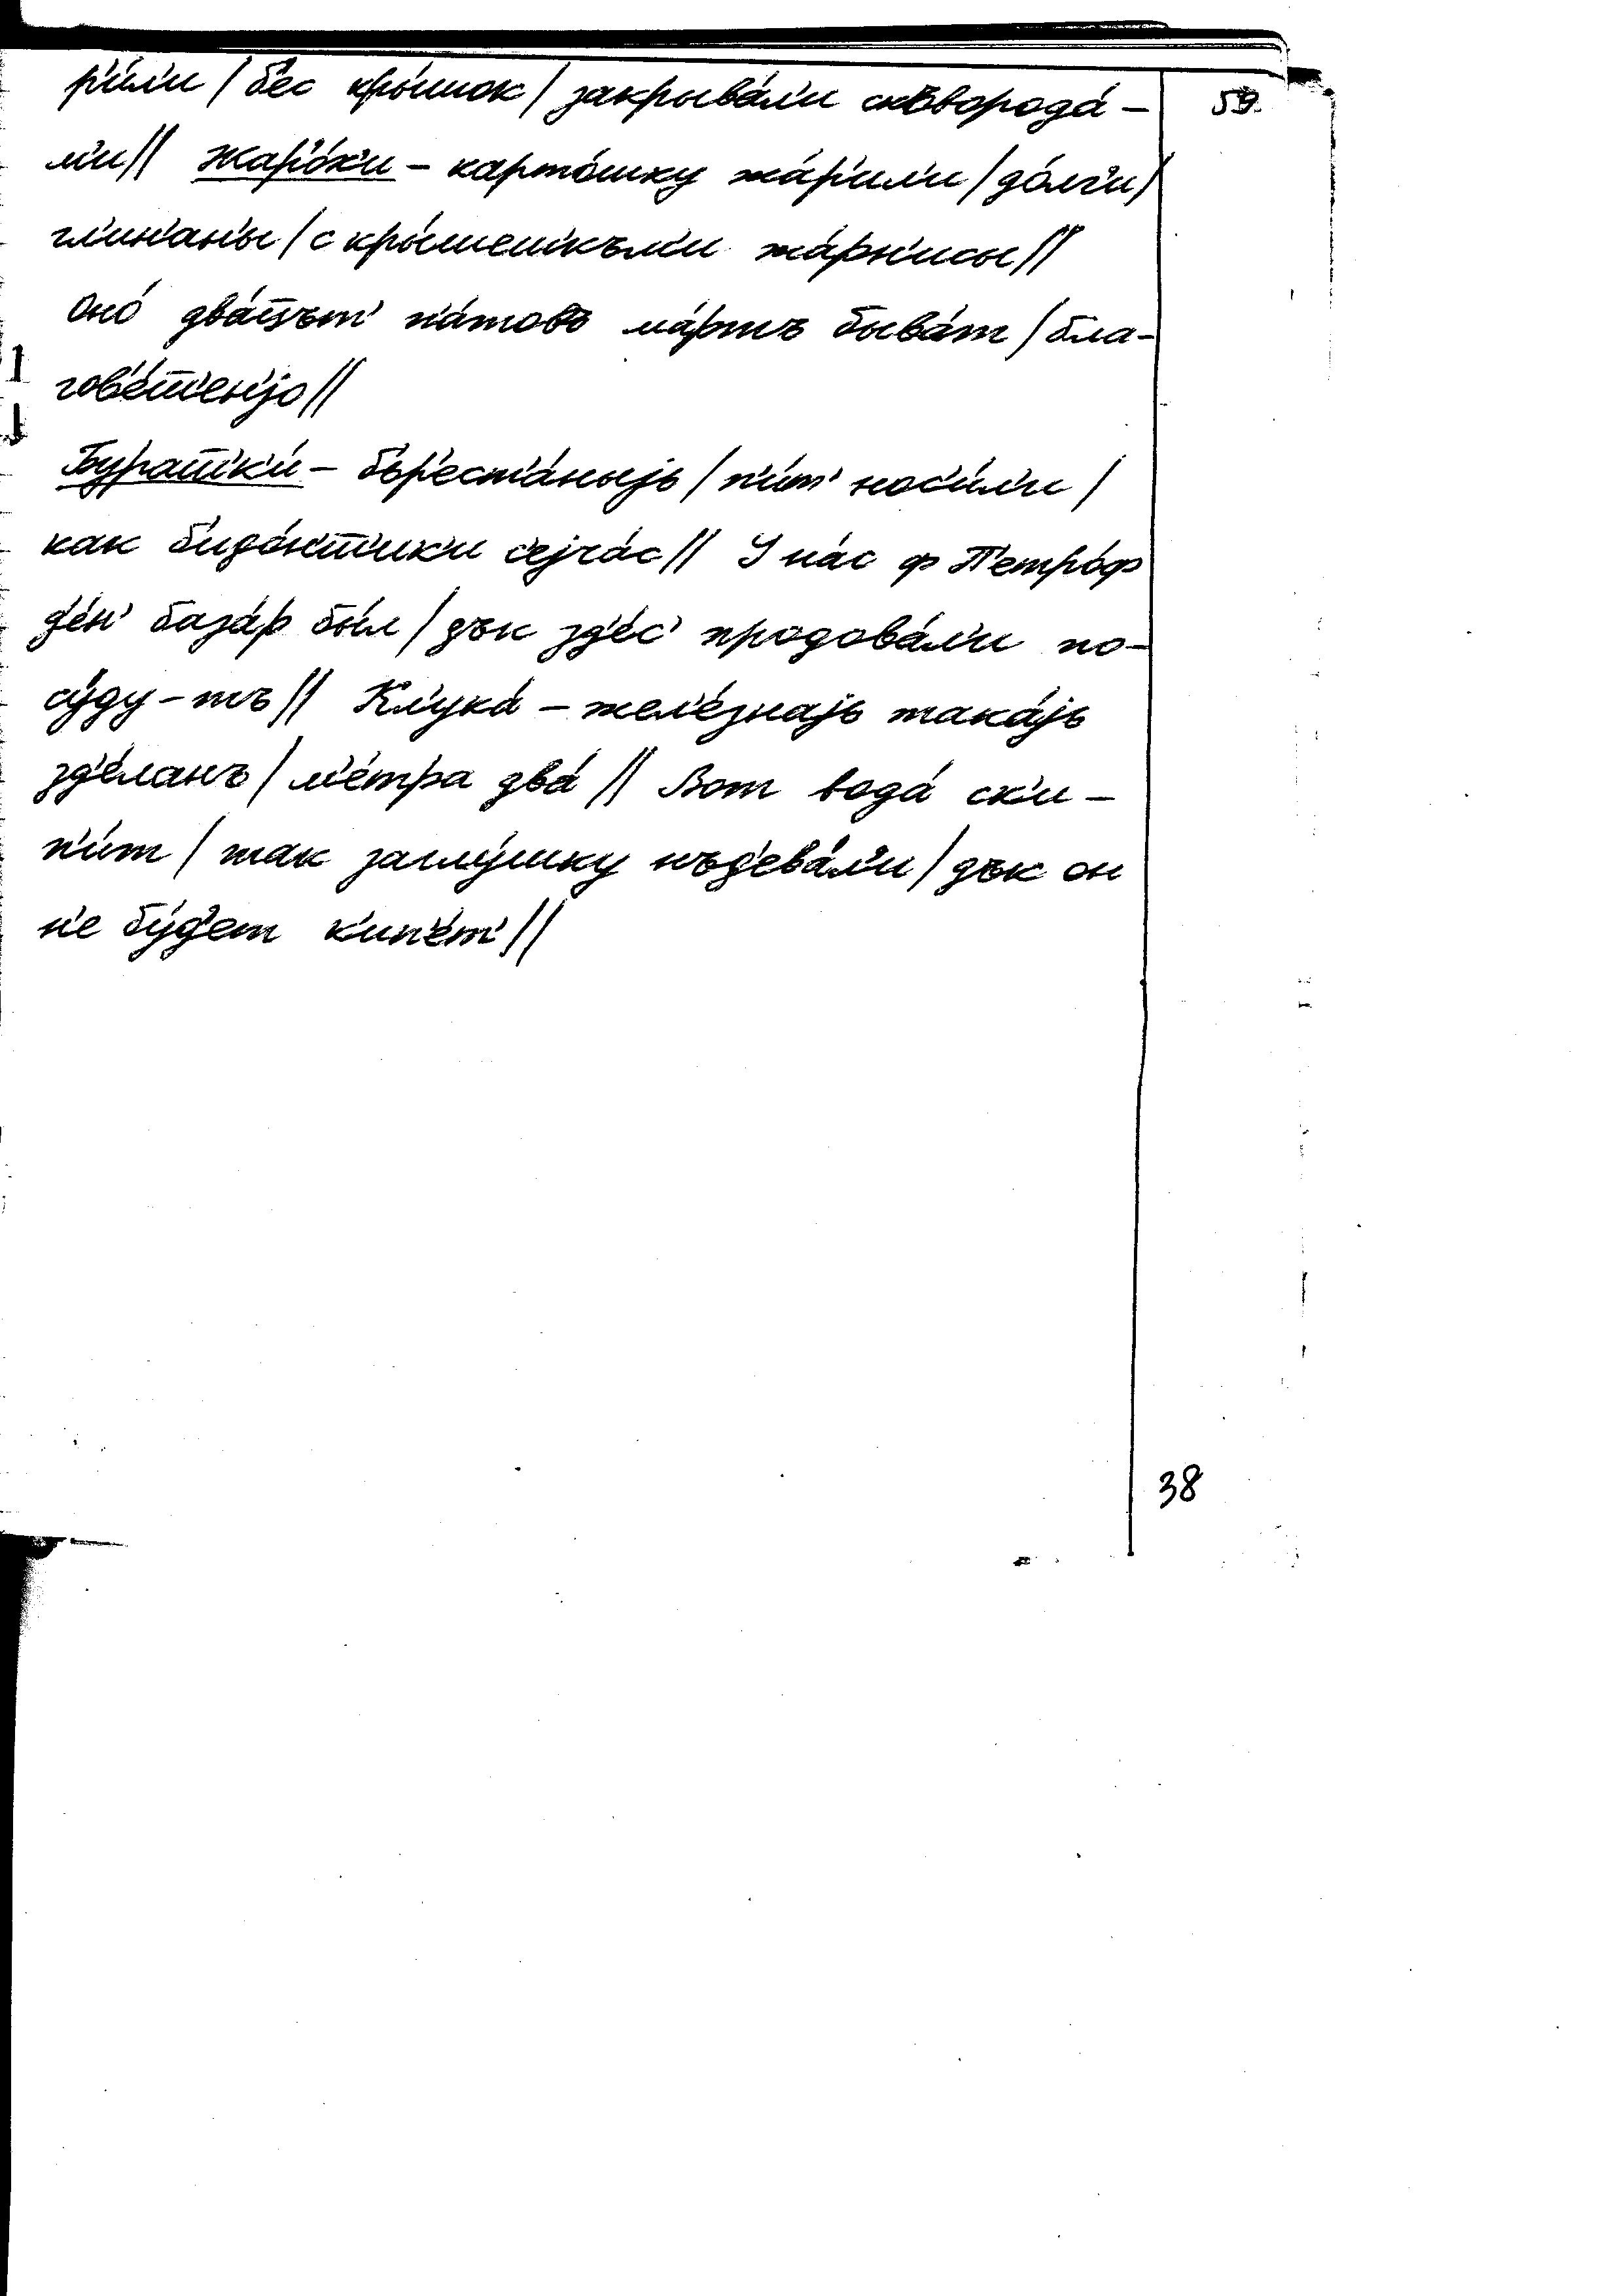 р'и́л'и / б'ес кры́шок / закрыва́л'и скъворода́- 59.
м'и // жар'о́к'и - карто́шку жа́р'ил'и / до́лг'и /
гл'и́н'аны / с кры́шешкъм'и жа́рн'ицы //
Оно́ два́цът' п'а́товъ ма́ртъ быва́т / бла-
гов'е́ш'ен'јо //
Бурашк'и́ - бьр'еста́ныјь / п'и́т' нос'и́л'и /
как б'идо́нш'ик'и с'ејча́с // У на́с ф П'етро́ф
д'е́н' база́р бы́л / дък зд'е́с' продова́л'и по-
су́ду-тъ // Кл'ука́ - жел'е́знајь така́јь
зд'е́ланъ / м'е́тра два́ // Вот вода́ ск'и-
п'и́т / так заглу́шку нъд'ева́л'и / дък он
н'е бу́д'ет к'ип'е́т' //
38